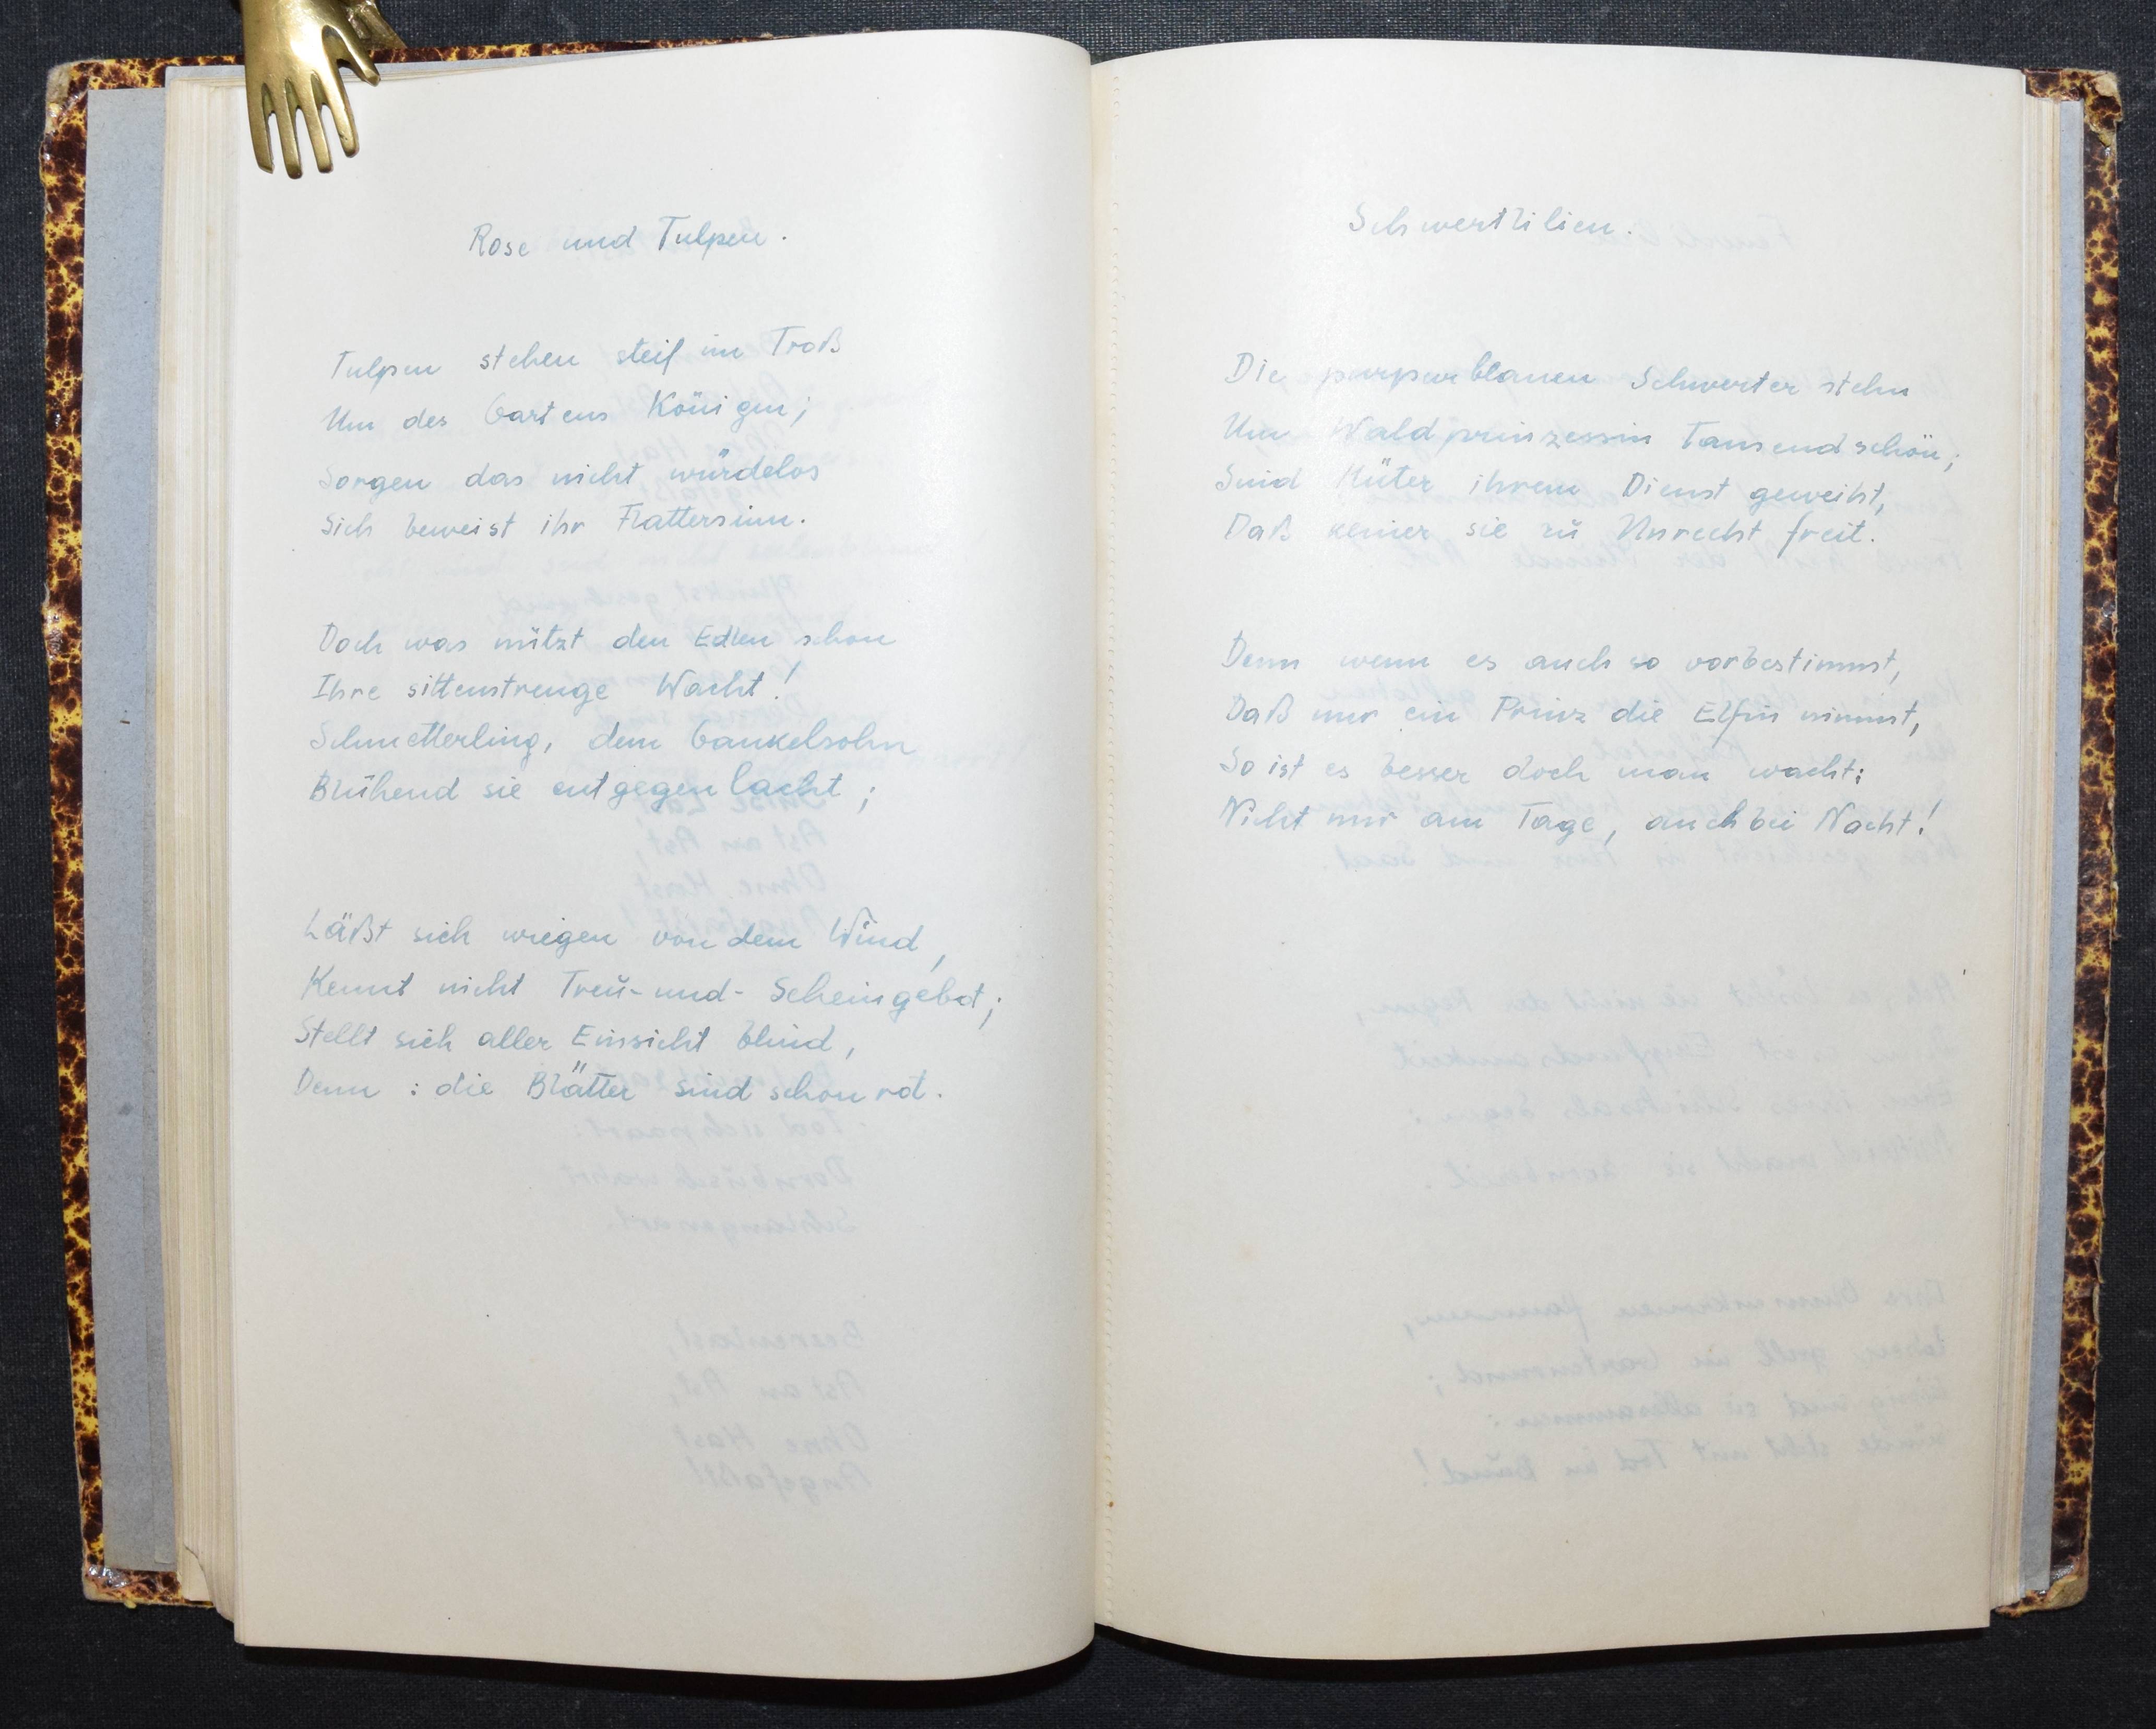 Rose und Tulpen.
Tulpen stehen steif im Troß
Um des Gartens Königen;
Sorgen das nicht würdelos
Sich beweist ihr Flattersinn.
Doch was nützt den Edlen schon
Ihre sittenstrenge Wacht!
Schmetterling, dem Gaukelsohn
Blühend sie entgegen lacht;
Läßt sich wiegen von dem Wind,
Kennt nicht Treu- und- Scheingebot;
Stellt sich aller Einsicht blind,
Denn : die Blätter sind schon rot.
Schwertlilien.
Die purpurblauen Schwerter stehn
Um Waldprinzessin Tausendschön;
Sind Hüter ihrem Dienst geweiht,
Daß keiner sie zu Unrecht freit.
Denn wenn es auch so vorbestimmt,
Daß nur ein Prinz die Elfin nimmt,
So ist es besser doch man wacht:
Nicht nur am Tage, auch bei Nacht!